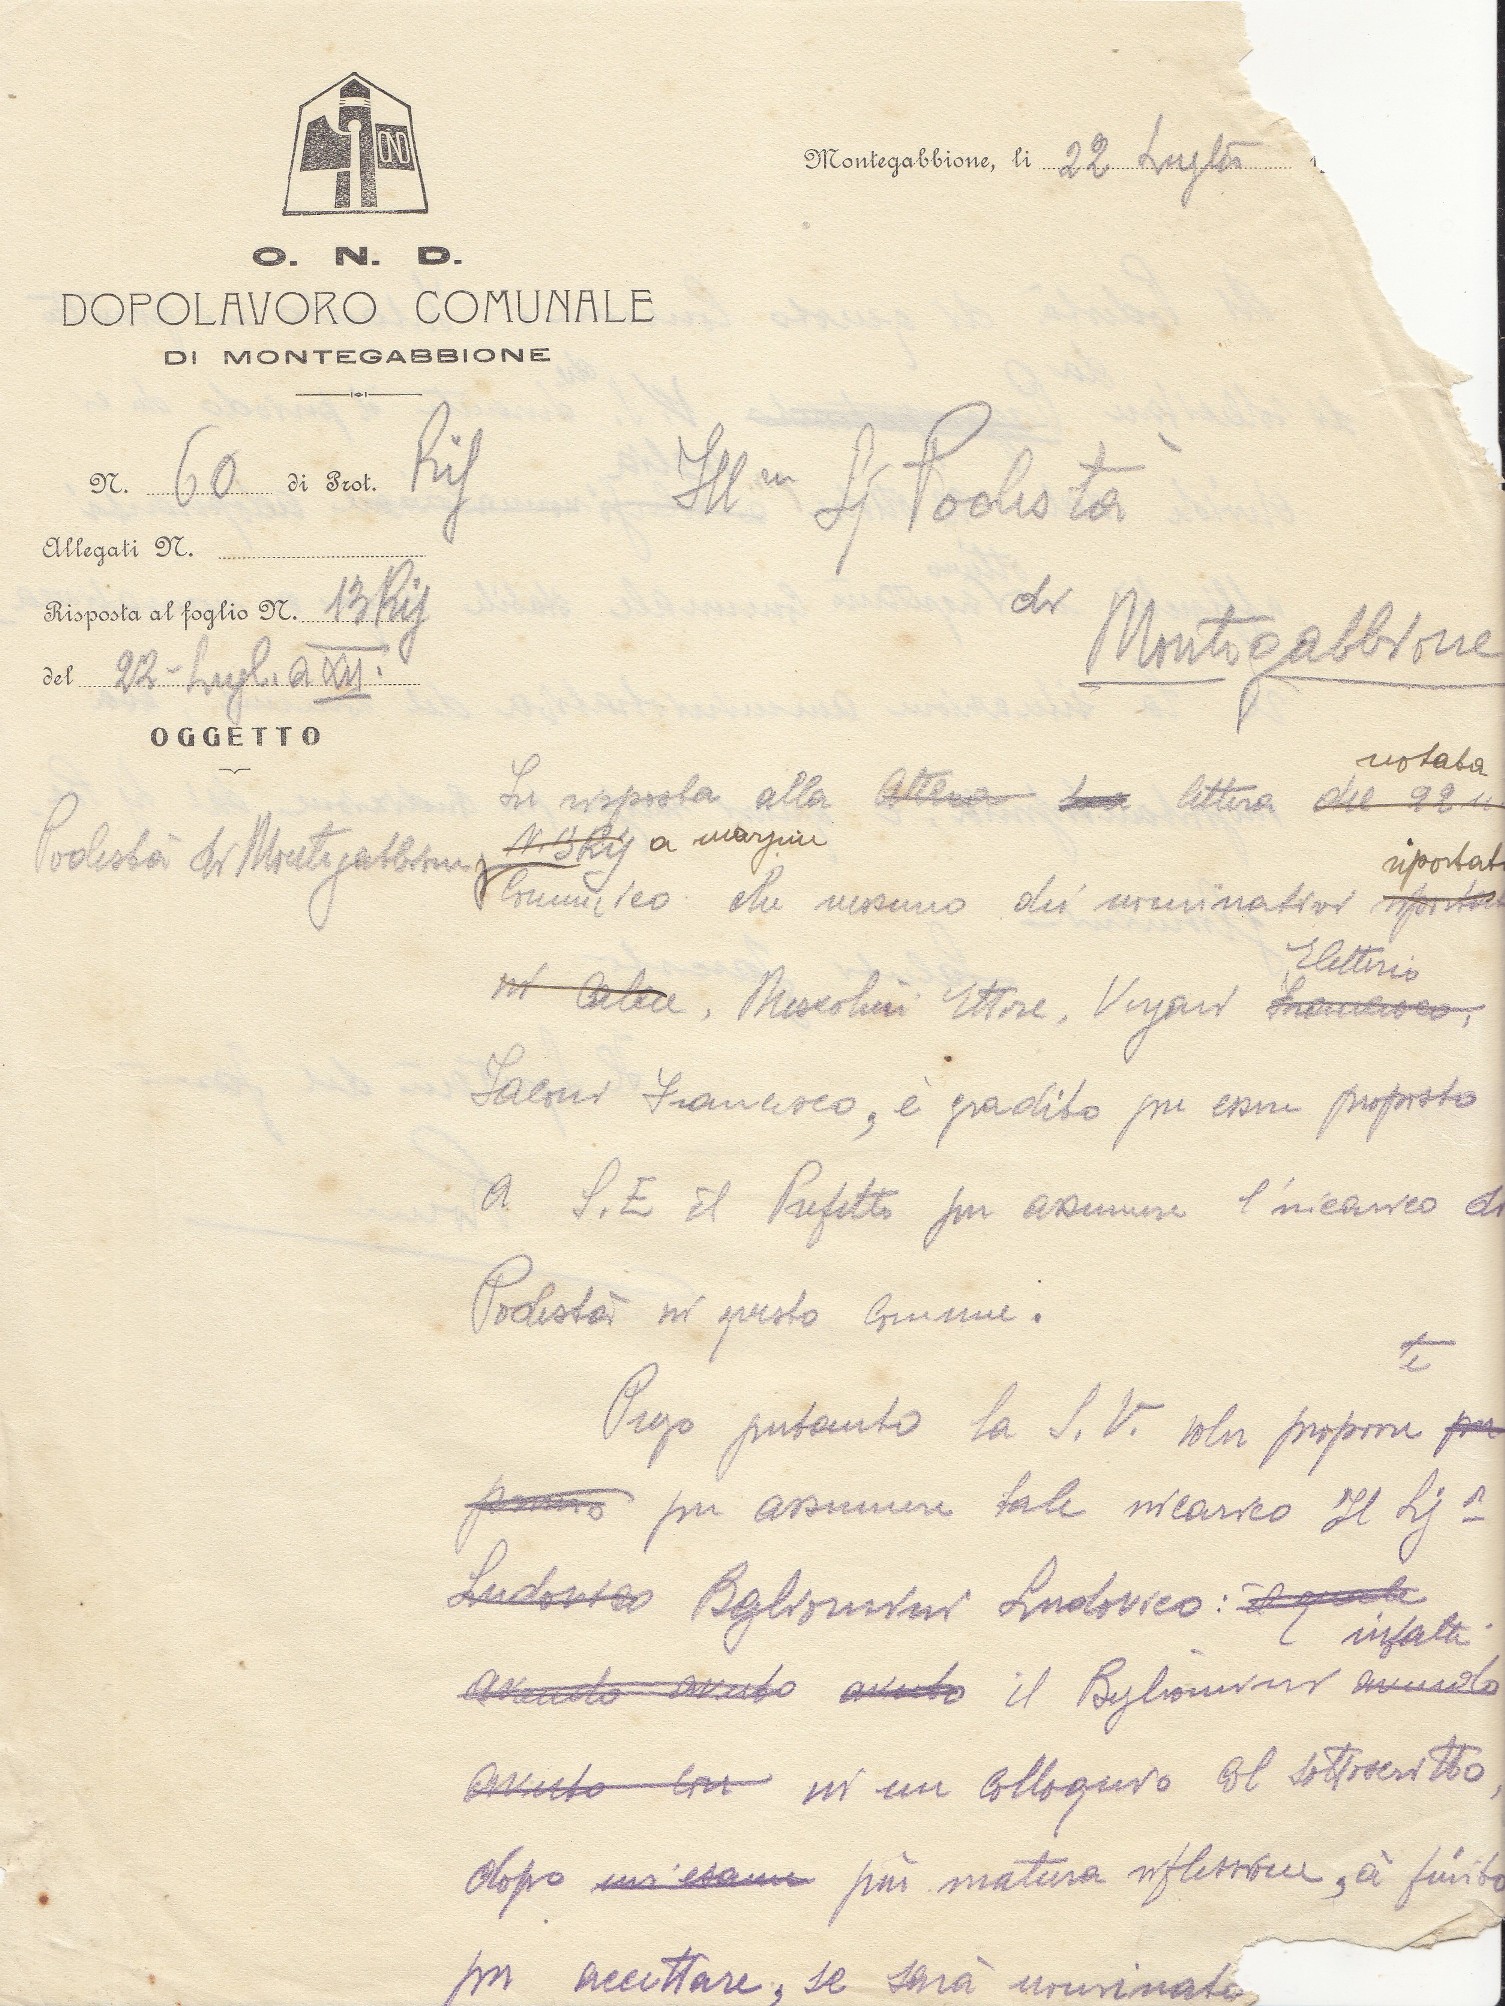 OND
O. N. D.
DOPOLAVORO COMUNALE
DI MONTEGABBIONE
Montegabbione, li 22 Luglio
N. 60 di Prot. Ris
Allegati N.
Risposta al foglio N. 13 Ris
del 22 - Lugl. a XII.
OGGETTO
Podestà di Montegabbione
Ill.m Sig Podestà
di Montegabbione
notata
In risposta alla lettera del 22
N. 13 Ris a margine
riportati
Comunico che nessuno dei nominativi
Eletterio
in calce, Moscolini Ettore, Vergari Francesco,
Iaconi Francesco, è gradito per essere proposto
a S.E il Prefetto per assumere l'incarico di
Podestà in questo comune.
te
Prego pertanto la S.V. voler proporre per
per assumere tale incarico Il Sig.r
Ludovico Baglionini Ludovico: il quale
infatti
avendo avuto avuto il Baglionini avendo
avuto con in un colloquio col sottoscritto,
dopo un'esame più matura riflessione, à finito
per accettare, se sarà nominato,